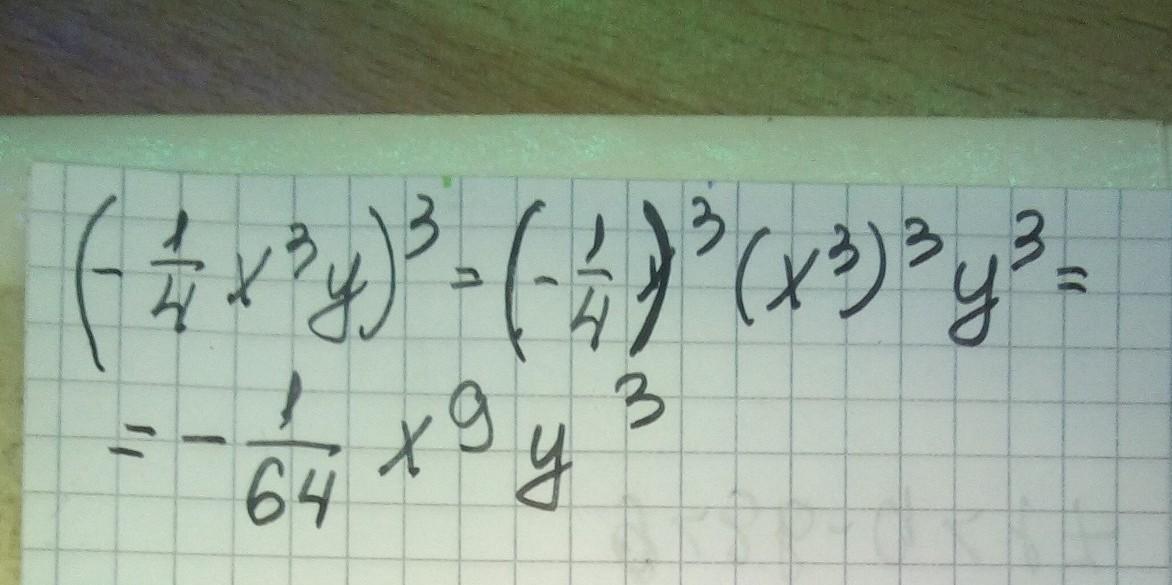 (-1/4 x³y)³ = (-1/4)³ (x³)³ y³ =
= - 1/64 x⁹ y³